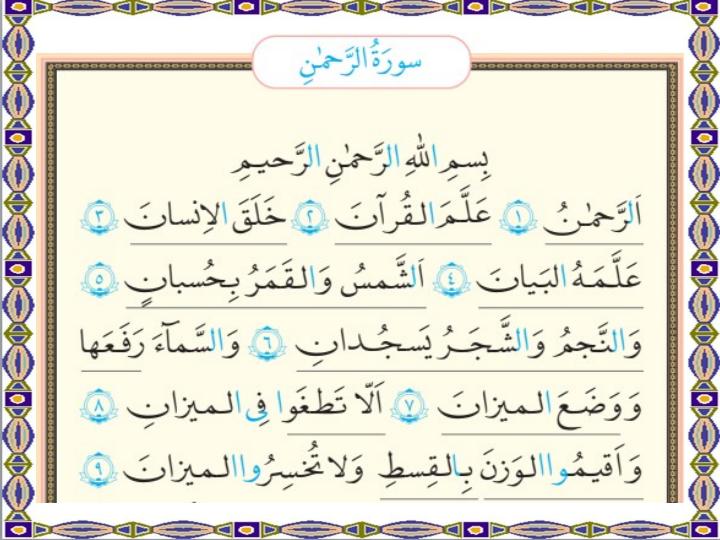 سورَةُ الرَّحمٰنِ
بِسمِ اللّٰهِ الرَّحمٰنِ الرَّحيمِ
اَلرَّحمٰنُ ١ عَلَّمَ القُرآنَ ٢ خَلَقَ الاِنسانَ ٣
عَلَّمَهُ البَيانَ ٤ اَلشَّمسُ وَالقَمَرُ بِحُسبانٍ ٥
وَالنَّجمُ وَالشَّجَرُ يَسجُدانِ ٦ وَالسَّمآءَ رَفَعَها
وَوَضَعَ الميزانَ ٧ اَلّا تَطغَوا فِى الميزانِ ٨
وَاَقيمُوا الوَزنَ بِالقِسطِ وَلا تُخسِرُوا الميزانَ ٩